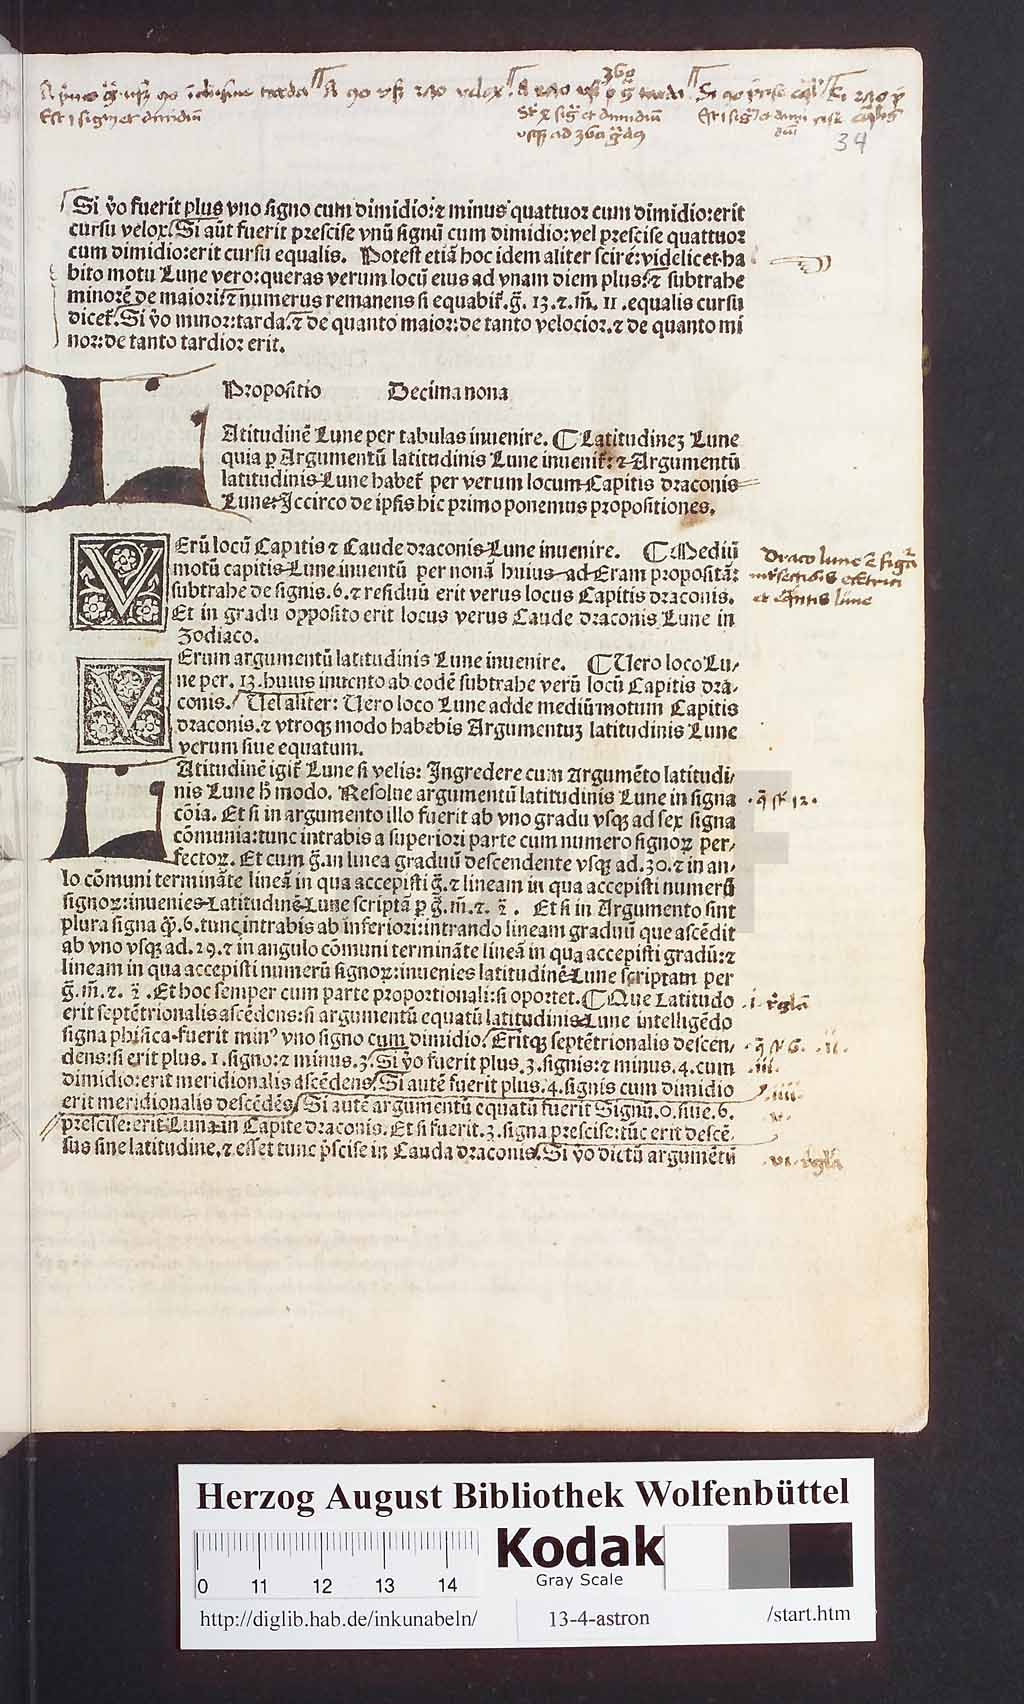 360
Est 1 signum et dimidiũ
usque ad 360
34
Si v̊o fuerit plus vno signo cum dimidio:⁊ minus quattuor cum dimidio:erit
cursu velox. Si aũt fuerit prescise vnũ signũ cum dimidio:vel prescise quattuor
cum dimidio:erit cursu equalis. Potest etiã hoc idem aliter scire:videlicet.ha
bito motu Lune vero:queras verum locũ eius ad vnam diem plus:⁊ subtrahe
minorẽ de maiori:⁊ numerus remanens si equabit̃.g̃. 13.⁊.m̃. 11.equalis cursu
dicet̃. Si v̊o minor:tarda.⁊ de quanto maior:de tanto velocior.⁊ de quanto mi
nor:de tanto tardior erit.
Propositio Decima nona
LAtitudinẽ Lune per tabulas inuenire. ¶ Latitudinez Lune
quia ꝑ Argumentũ latitudinis Lune inuenit̃:⁊ Argumentũ
latitudinis Lune habet̃ per verum locum Capitis draconis
Lune:Iccirco de ipsis hic primo ponemus propositiones.
VErũ locũ Capitis ⁊ Caude draconis Lune inuenire. ¶ Mediũ
motũ capitis Lune inuentũ per nonã huius ad Eram propositã:
subtrahe de signis.6.⁊ residuũ erit verus locus Capitis draconis.
Et in gradu opposito erit locus verus Caude draconis Lune in
zodiaco.
Draco lune
VErum argumentũ latitudinis Lune inuenire. ¶ Uero loco Lu/
ne per. 13.huius inuento ab eodẽ subtrahe verũ locũ Capitis dra-
conis. Uel aliter: Uero loco Lune adde mediũ motum Capitis
draconis.⁊ vtroqꝫ modo habebis Argumentuz latitudinis Lune
verum siue equatum.
LAtitudinẽ igit̃ Lune si velis: Ingredere cum argumẽto latitudi/
nis Lune h̊ modo. Resolue argumentũ latitudinis Lune in signa
cõia. Et si in argumento illo fuerit ab vno gradu vsqꝫ ad sex signa
cõmunia:tunc intrabis a superiori parte cum numero signoꝝ per/
fectoꝝ. Et cum g̃.in linea graduũ descendente vsqꝫ ad.30.⁊ in an/
lo cõmuni terminãte lineã in qua accepisti g̃.⁊ lineam in qua accepisti numerũ
signoꝝ:inuenies Latitudinẽ Lune scriptã ꝑ g̃.m̃.⁊. 2̃. Et si in Argumento sint
plura signa q̃ꝫ.6.tunc intrabis ab inferiori:intrando lineam graduũ que ascẽdit
ab vno vsqꝫ ad.29.⁊ in angulo cõmuni terminãte lineã in qua accepisti gradũ:⁊
lineam in qua accepisti numerũ signoꝝ:inuenies latitudinẽ Lune scriptam per
g̃.m̃.⁊. 2̃ .Et hoc semper cum parte proportionali:si oportet. ¶ Que Latitudo
erit septẽtrionalis ascẽdens:si argumentũ equatũ latitudinis Lune intelligẽdo
signa phisica fuerit minꝰ vno signo cum dimidio. Eritqꝫ septẽtrionalis descen/
dens:si erit plus. 1.signo:⁊ minus.3. Si v̊o fuerit plus.3.signis:⁊ minus.4.cum
dimidio:erit meridionalis ascẽdens. Si autẽ fuerit plus.4.signis cum dimidio
erit meridionalis descẽdẽs. Si autẽ argumentũ equatũ fuerit Signũ.0.siue.6.
prescise:erit Luna in Capite draconis. Et si fuerit.3.signa prescise:tũc erit descẽ-
sus sine latitudine.⁊ esset tunc p̃scise in Cauda draconis. Si v̊o dictũ argumẽtũ
12.
.i. regla
.ii.
.iii.
.iiii.
v.
.vi. regla
Herzog August Bibliothek Wolfenbüttel
Kodak
Gray Scale
0 11 12 13 14
http://diglib.hab.de/inkunabeln/ 13-4-astron /start.htm